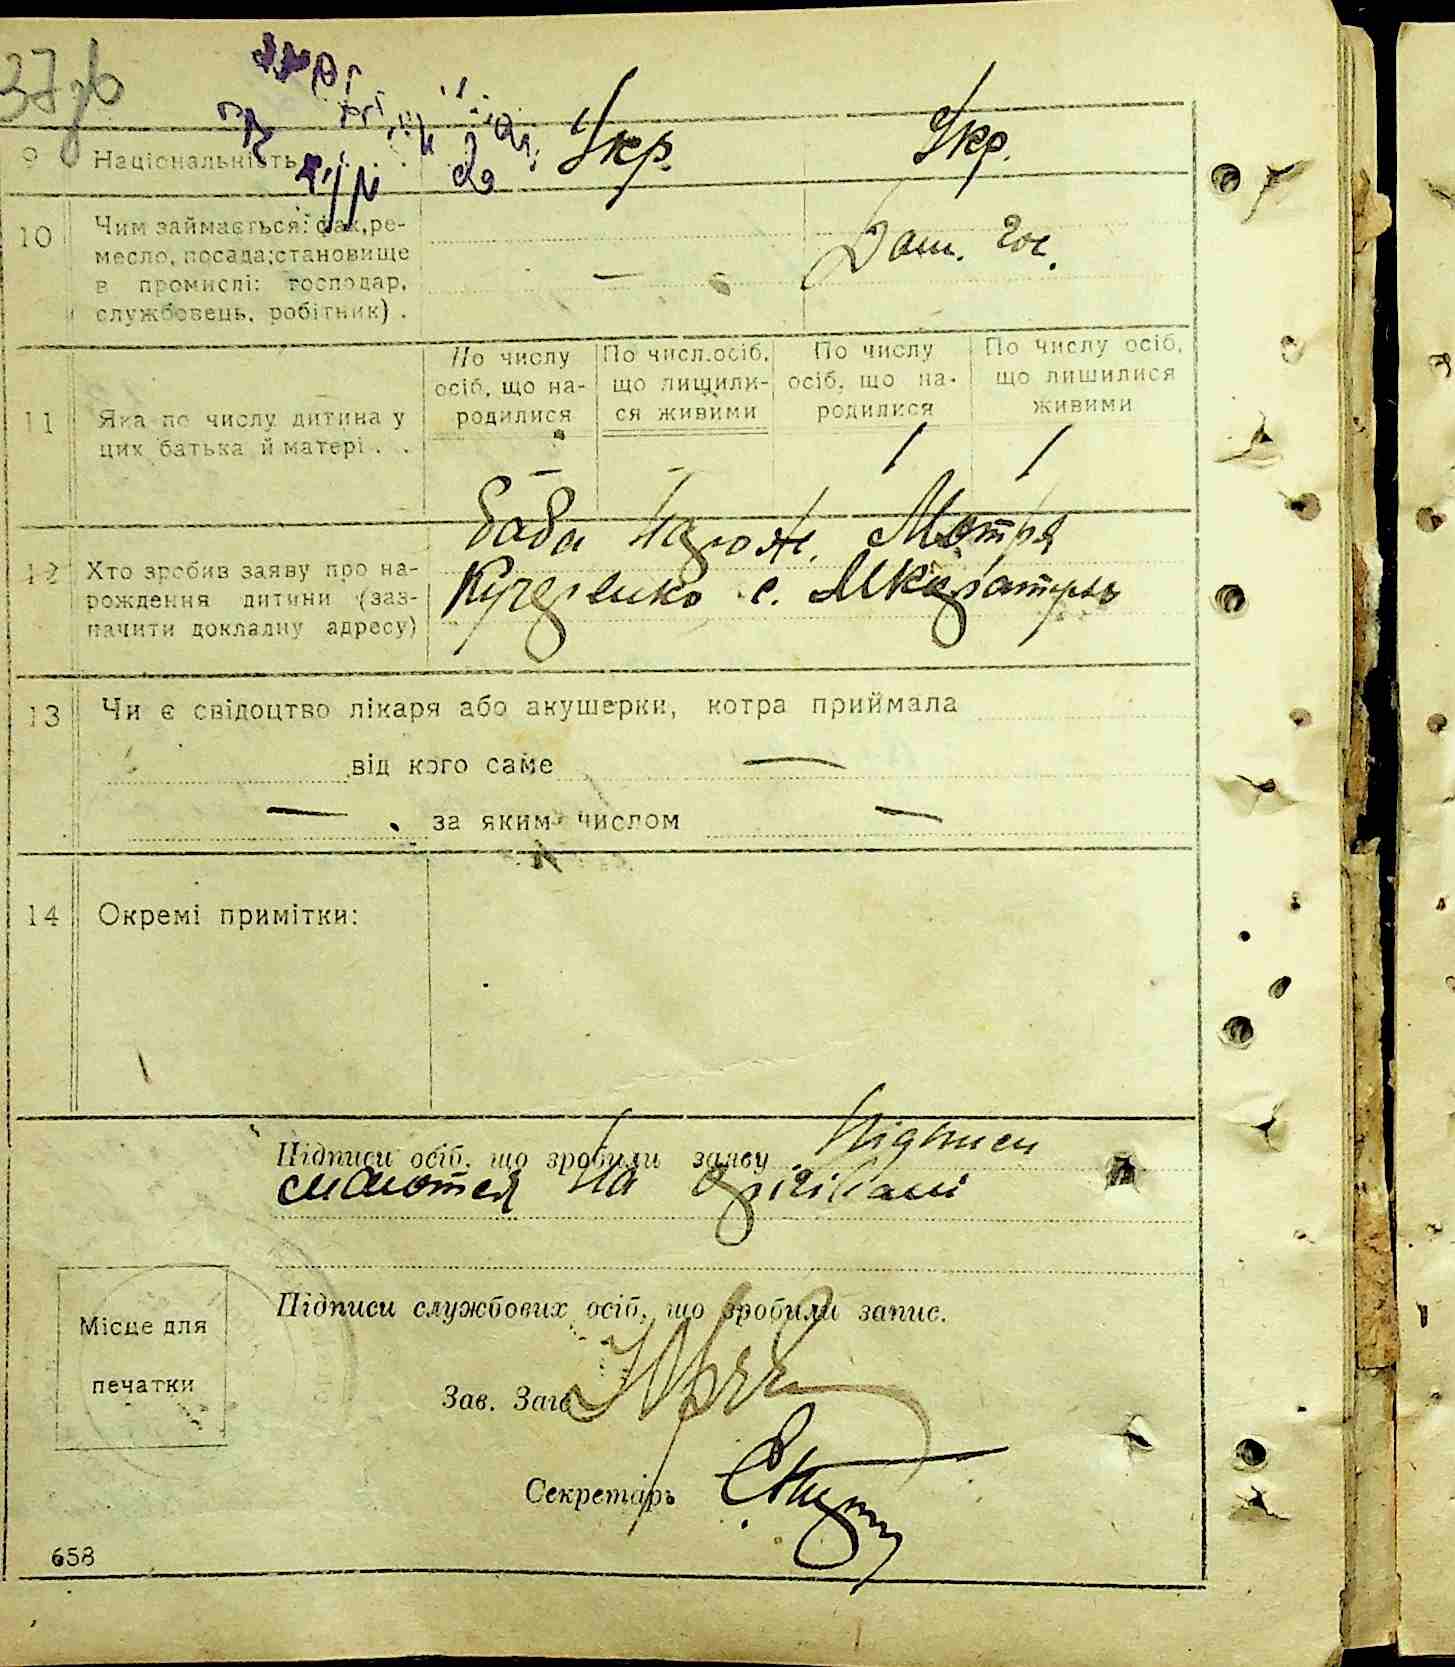 37зв
9 Національність Укр. Укр.
10 Чим займається: фах, ре-
месло, посада; становище
в промислі: господар,
службовець, робітник) . — Дом. гос.
По числу осіб, що на- родилися По числ. осіб, що лищили- ся живими По числу осіб, що на- родилися По числу осіб, що лишилися живими
11 Яка по числу дитина у
цих батька й матері . . – – 1 1
баба Мотря
12 Хто зробив заяву про на-
рождення дитини (заз-
начити докладну адресу)
Кучеренко с.
13 Чи є свідоцтво лікаря або акушерки, котра приймала
від кого саме —
— за яким числом —
14 Окремі примітки:
Підписи осіб, що зробили заяву Підписи
маются на
Підписи службових осіб, що зробили запис.
Місце для
печатки
Зав. Загс
Секретарь
658